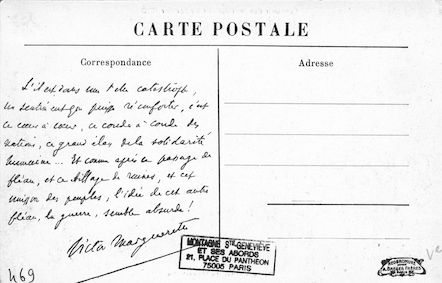 CARTE POSTALE
Correspondance
Adresse
S'il est dans une telle catastrophe,
un sentiment qui puisse réconforter, c'est
ce cœur à cœur, ce coude à coude des
nations, ce grand élan de la solidarité
humaine... Et comme après ce passage de
fléau, et ce village de ruines, et cet
unisson des peuples, l'idée de cet autre
fléau, la guerre, semble absurde !
Victor Margueritte
MONTAGNE STE GENEVIÈVE
ET SES ABORDS
21, PLACE DU PANTHÉON
75005 PARIS
469